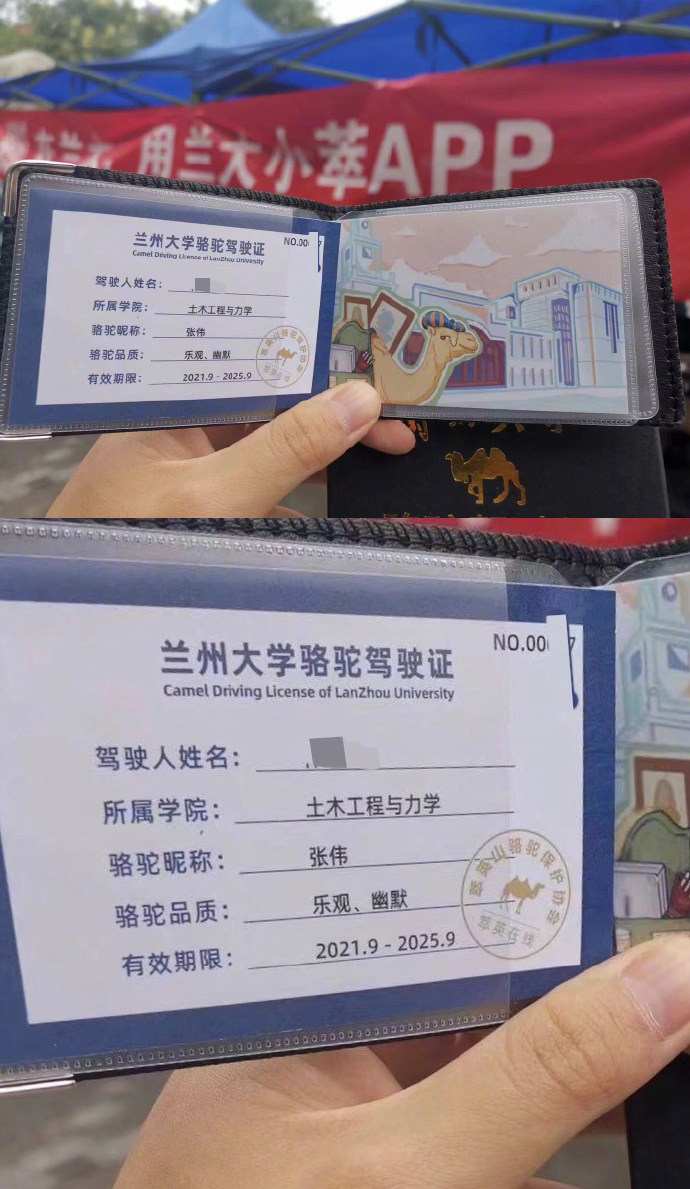 用兰大小萃APP
兰州大学骆驼驾驶证
Camel Driving License of LanZhou University
NO.00 7
驾驶人姓名：
所属学院： 土木工程与力学
骆驼昵称： 张伟
骆驼品质： 乐观、幽默
有效期限： 2021.9 - 2025.9
萃英山骆驼保护协会
萃英在线
兰州大学骆驼驾驶证
Camel Driving License of LanZhou University
NO.00 7
驾驶人姓名：
所属学院： 土木工程与力学
骆驼昵称： 张伟
骆驼品质： 乐观、幽默
有效期限： 2021.9 - 2025.9
萃英山骆驼保护协会
萃英在线